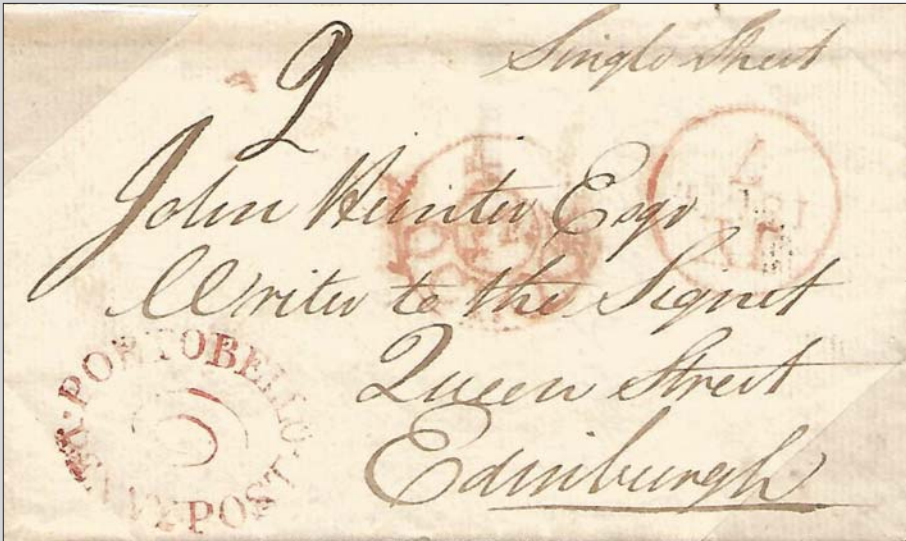 2
Single Sheet
John Hunter Esqr
Writer to the Signet
Queen Street
Edinburgh
PORTOBELLO
PENNY POST